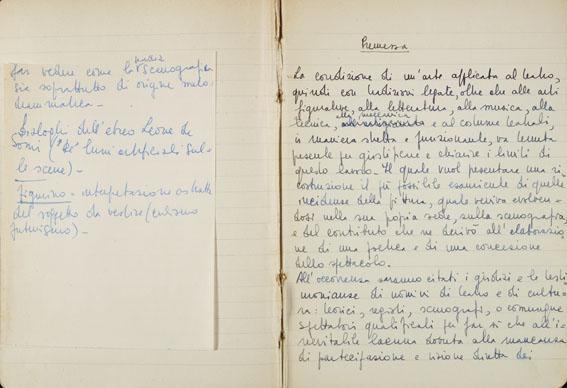 far vedere come la nostra scenografia
sia soprattutto di origine melo-
drammatica -
Dialoghi dell'ebreo Leone de
Somi ("de' lumi artificiali sul-
le scene) -
Figurino - interpretazione astratta
del soggetto da vestire (cubismo
futurismo) -
Premessa
La condizione di un'arte applicata al teatro,
quindi con tradizioni legate, oltre che alle arti
figurative, alla letteratura, alla musica, alla
tecnica, alla meccanica e al costume teatrali,
in maniera stretta e funzionante, va tenuta
presente per giustificare e chiarire i limiti di
questo lavoro. Il quale vuol presentare una ri-
costruzione il più possibile esauriente di quelle
incidenze della pittura, quale veniva evolven-
dosi nella sua propia sede, sulla scenografia,
e del contributo che ne derivò all'elaborazio-
ne di una poetica e di una concezione
dello spettacolo.
All'occorrenza saranno citati i giudizi e le testi-
monianze di uomini di teatro e di cultu-
ra: teorici, registi, scenografi, o comunque
spettatori qualificati per far sì che all'i-
nevitabile lacuna dovuta alla mancanza
di partecipazione e visione diretta dei